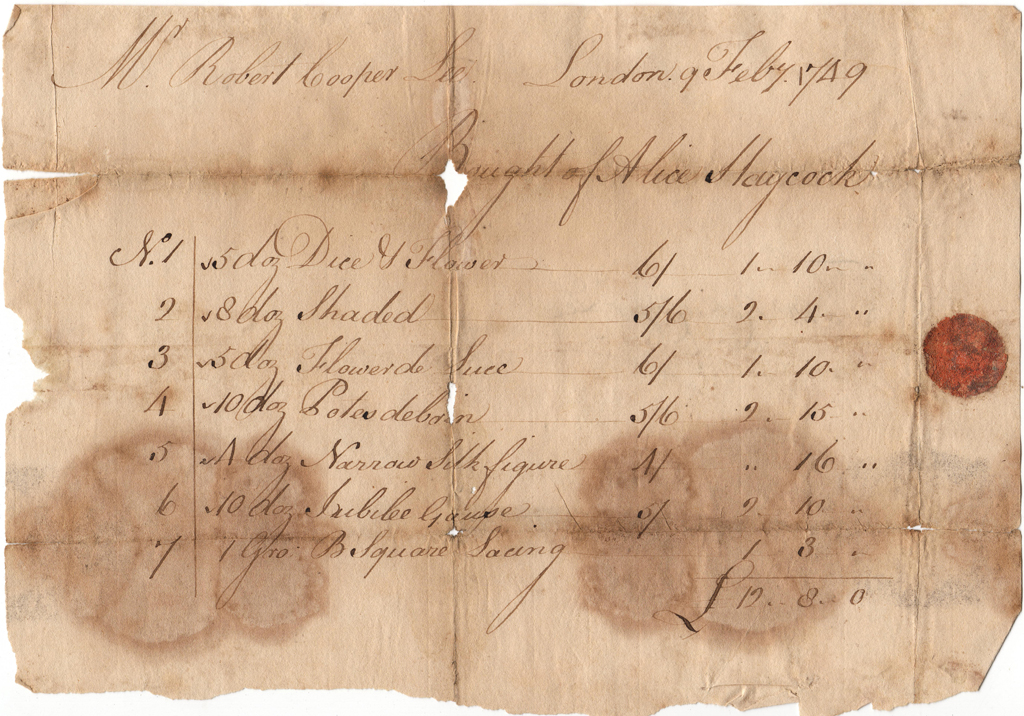 Mr Robert Cooper Lee London 9 Feby. 1749
Bought of Alice Haycock
No. 1 5 doz Dice & Flower 6/ 1 .. 10 .. ..
2 8 doz Shaded 5/6 2 . 4 . ..
3 5 doz Flower de Luce 6/ 1 . 10 . ..
4 10 doz 5/6 2 . 15 ..
5 4 doz Narrow Silk figure 4/ .. 16 ..
6 10 doz Jubilee Gause 5/ 2 . 10 ..
7 1 Gro: B Square Lacing 1 3 ..
£ 12 .. 8 .. 0